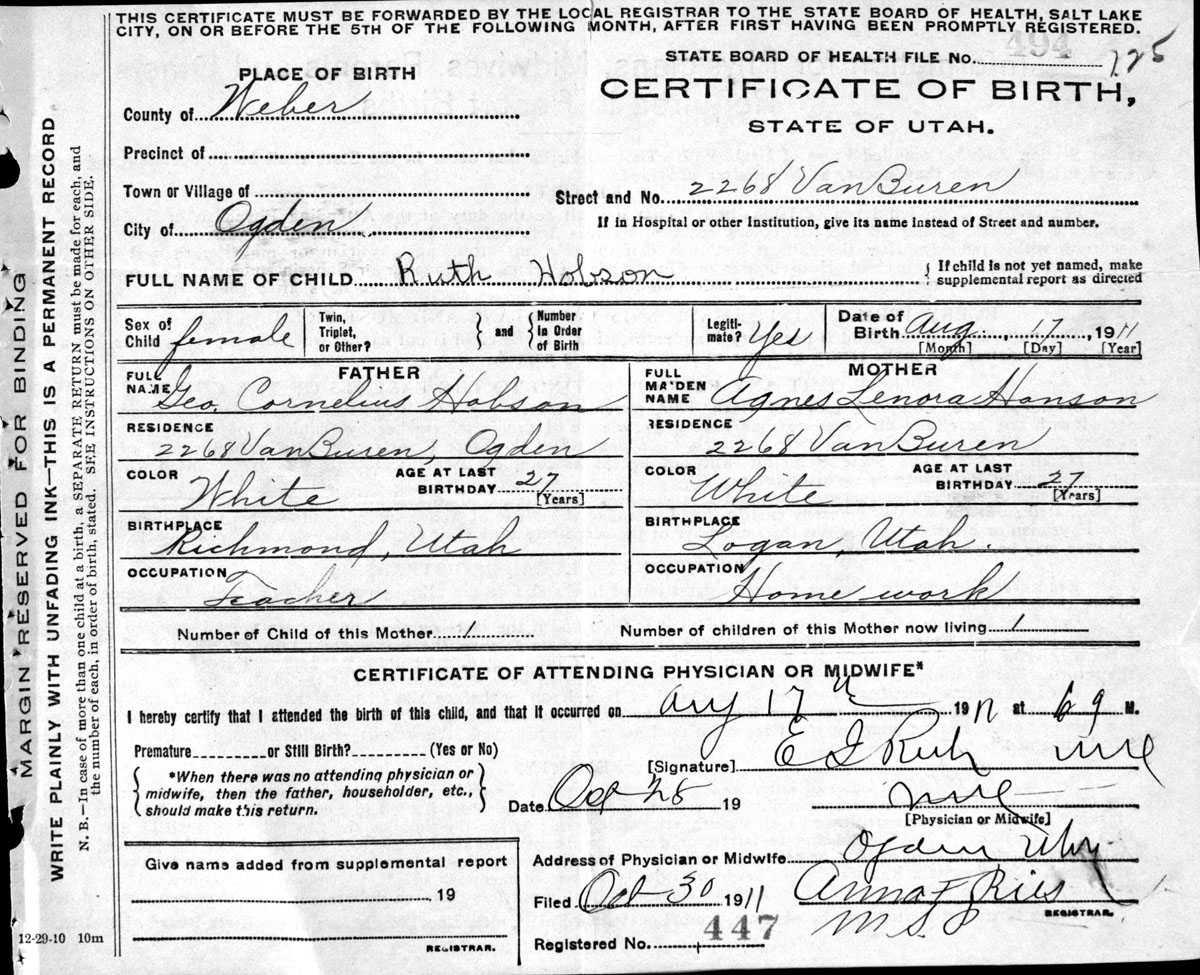 THIS CERTIFICATE MUST BE FORWARDED BY THE LOCAL REGISTRAR TO THE STATE BOARD OF HEALTH, SALT LAKE
CITY, ON OR BEFORE THE 5TH OF THE FOLLOWING MONTH, AFTER FIRST HAVING BEEN PROMPTLY REGISTERED.
STATE BOARD OF HEALTH FILE No. 494 125
PLACE OF BIRTH
CERTIFICATE OF BIRTH,
STATE OF UTAH.
County of Weber
Precinct of
Town or Village of
Street and No. 2268 Van Buren
City of Ogden
If in Hospital or other Institution, give its name instead of Street and number.
FULL NAME OF CHILD Ruth Hobson
{ If child is not yet named, make
supplemental report as directed
Sex of Child female
Twin, Triplet, or Other? } and { Number in Order of Birth
Legiti-mate? Yes
Date of Birth Aug. 17, 1911
[Month] [Day] [Year]
FATHER
MOTHER
FULL NAME Geo. Cornelius Hobson
FULL MAIDEN NAME Agnes Lenora Hanson
RESIDENCE 2268 Van Buren, Ogden
RESIDENCE 2268 Van Buren
COLOR White
AGE AT LAST BIRTHDAY 27 [Years]
COLOR White
AGE AT LAST BIRTHDAY 27 [Years]
BIRTHPLACE Richmond, Utah
BIRTHPLACE Logan, Utah.
OCCUPATION Teacher
OCCUPATION Home work
Number of Child of this Mother 1
Number of children of this Mother now living 1
CERTIFICATE OF ATTENDING PHYSICIAN OR MIDWIFE*
I hereby certify that I attended the birth of this child, and that it occurred on Aug 17 1911 at 6 M.
Premature or Still Birth? (Yes or No)
[Signature] E I
{ *When there was no attending physician or
midwife, then the father, householder, etc.,
should make this return. }
Date Oct 28 19
[Physician or Midwife]
Give name added from supplemental report
19
REGISTRAR.
Address of Physician or Midwife Ogden Utah
Filed Oct 30 1911 Anna F Ries
REGISTRAR.
Registered No. 447
MARGIN RESERVED FOR BINDING
WRITE PLAINLY WITH UNFADING INK—THIS IS A PERMANENT RECORD
N. B.—In case of more than one child at a birth, a SEPARATE RETURN must be made for each, and
the number of each, in order of birth, stated. SEE INSTRUCTIONS ON OTHER SIDE.
12-29-10 10m